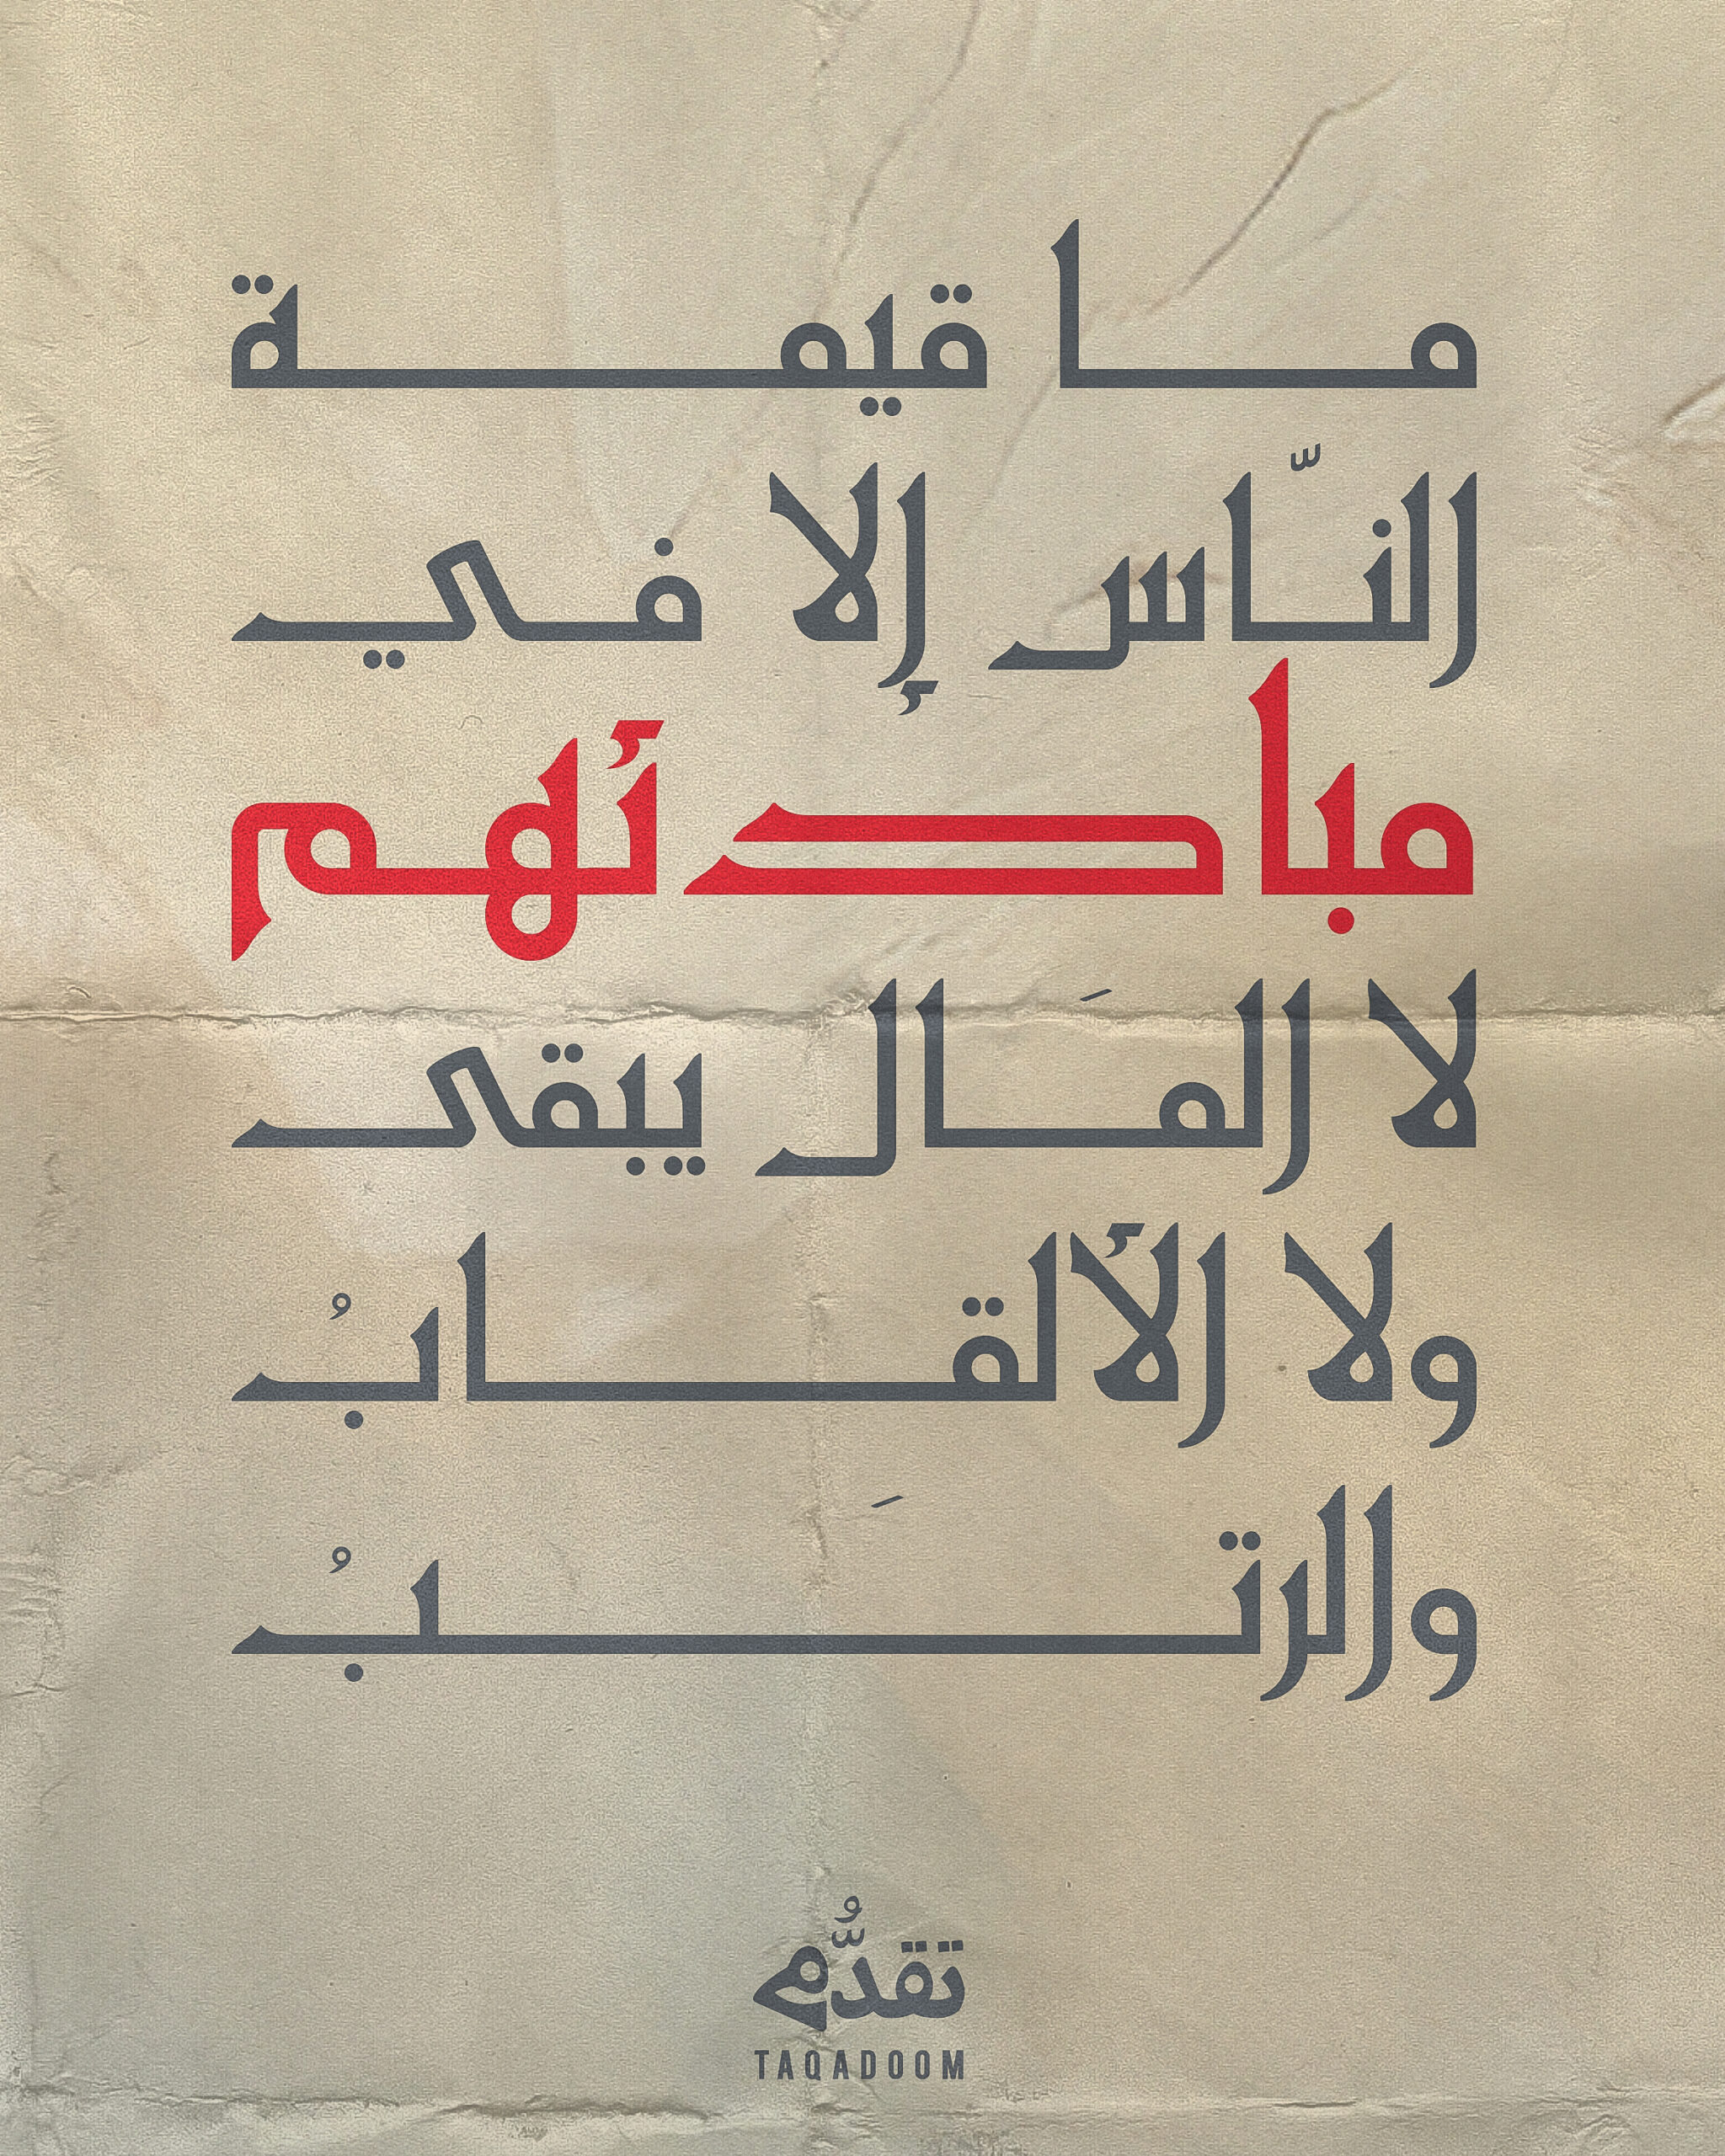 ما قيمة
النّاس إلا في
مبادئهم
لا المَال يبقى
ولا الألقابُ
والرتَبُ
تقدُّم
TAQADOOM